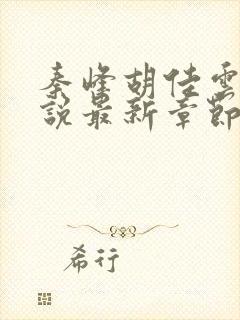 秦峰胡佳云
說最新章節
希行